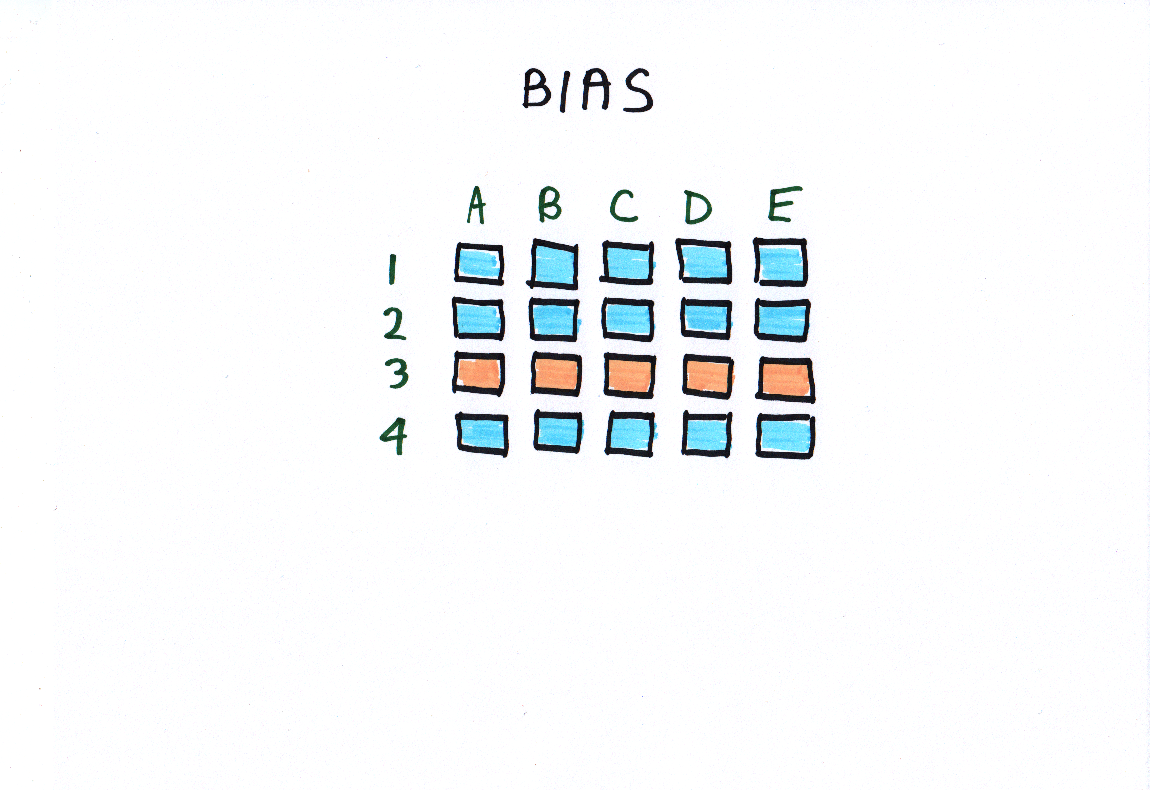 BIAS
A B C D E
1
2
3
4